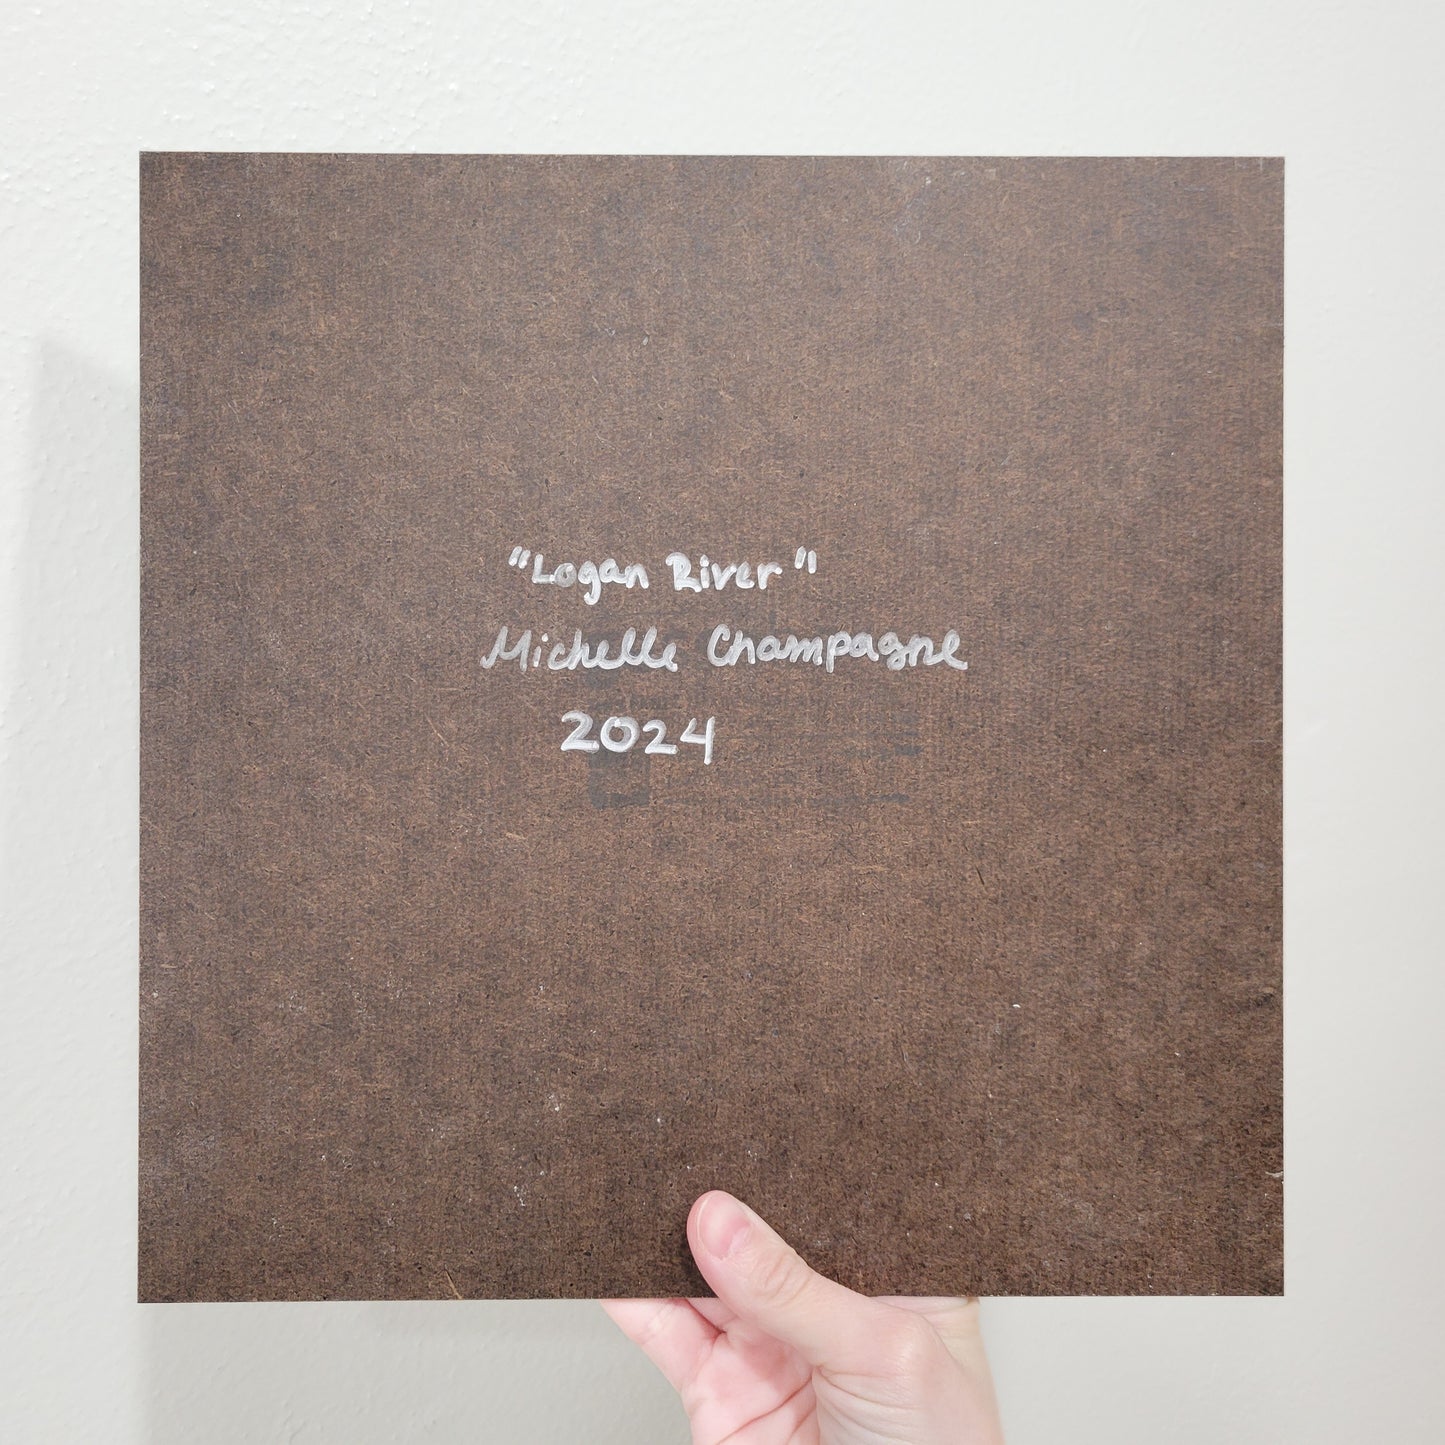 "Logan River"
Michelle Champagne
2024